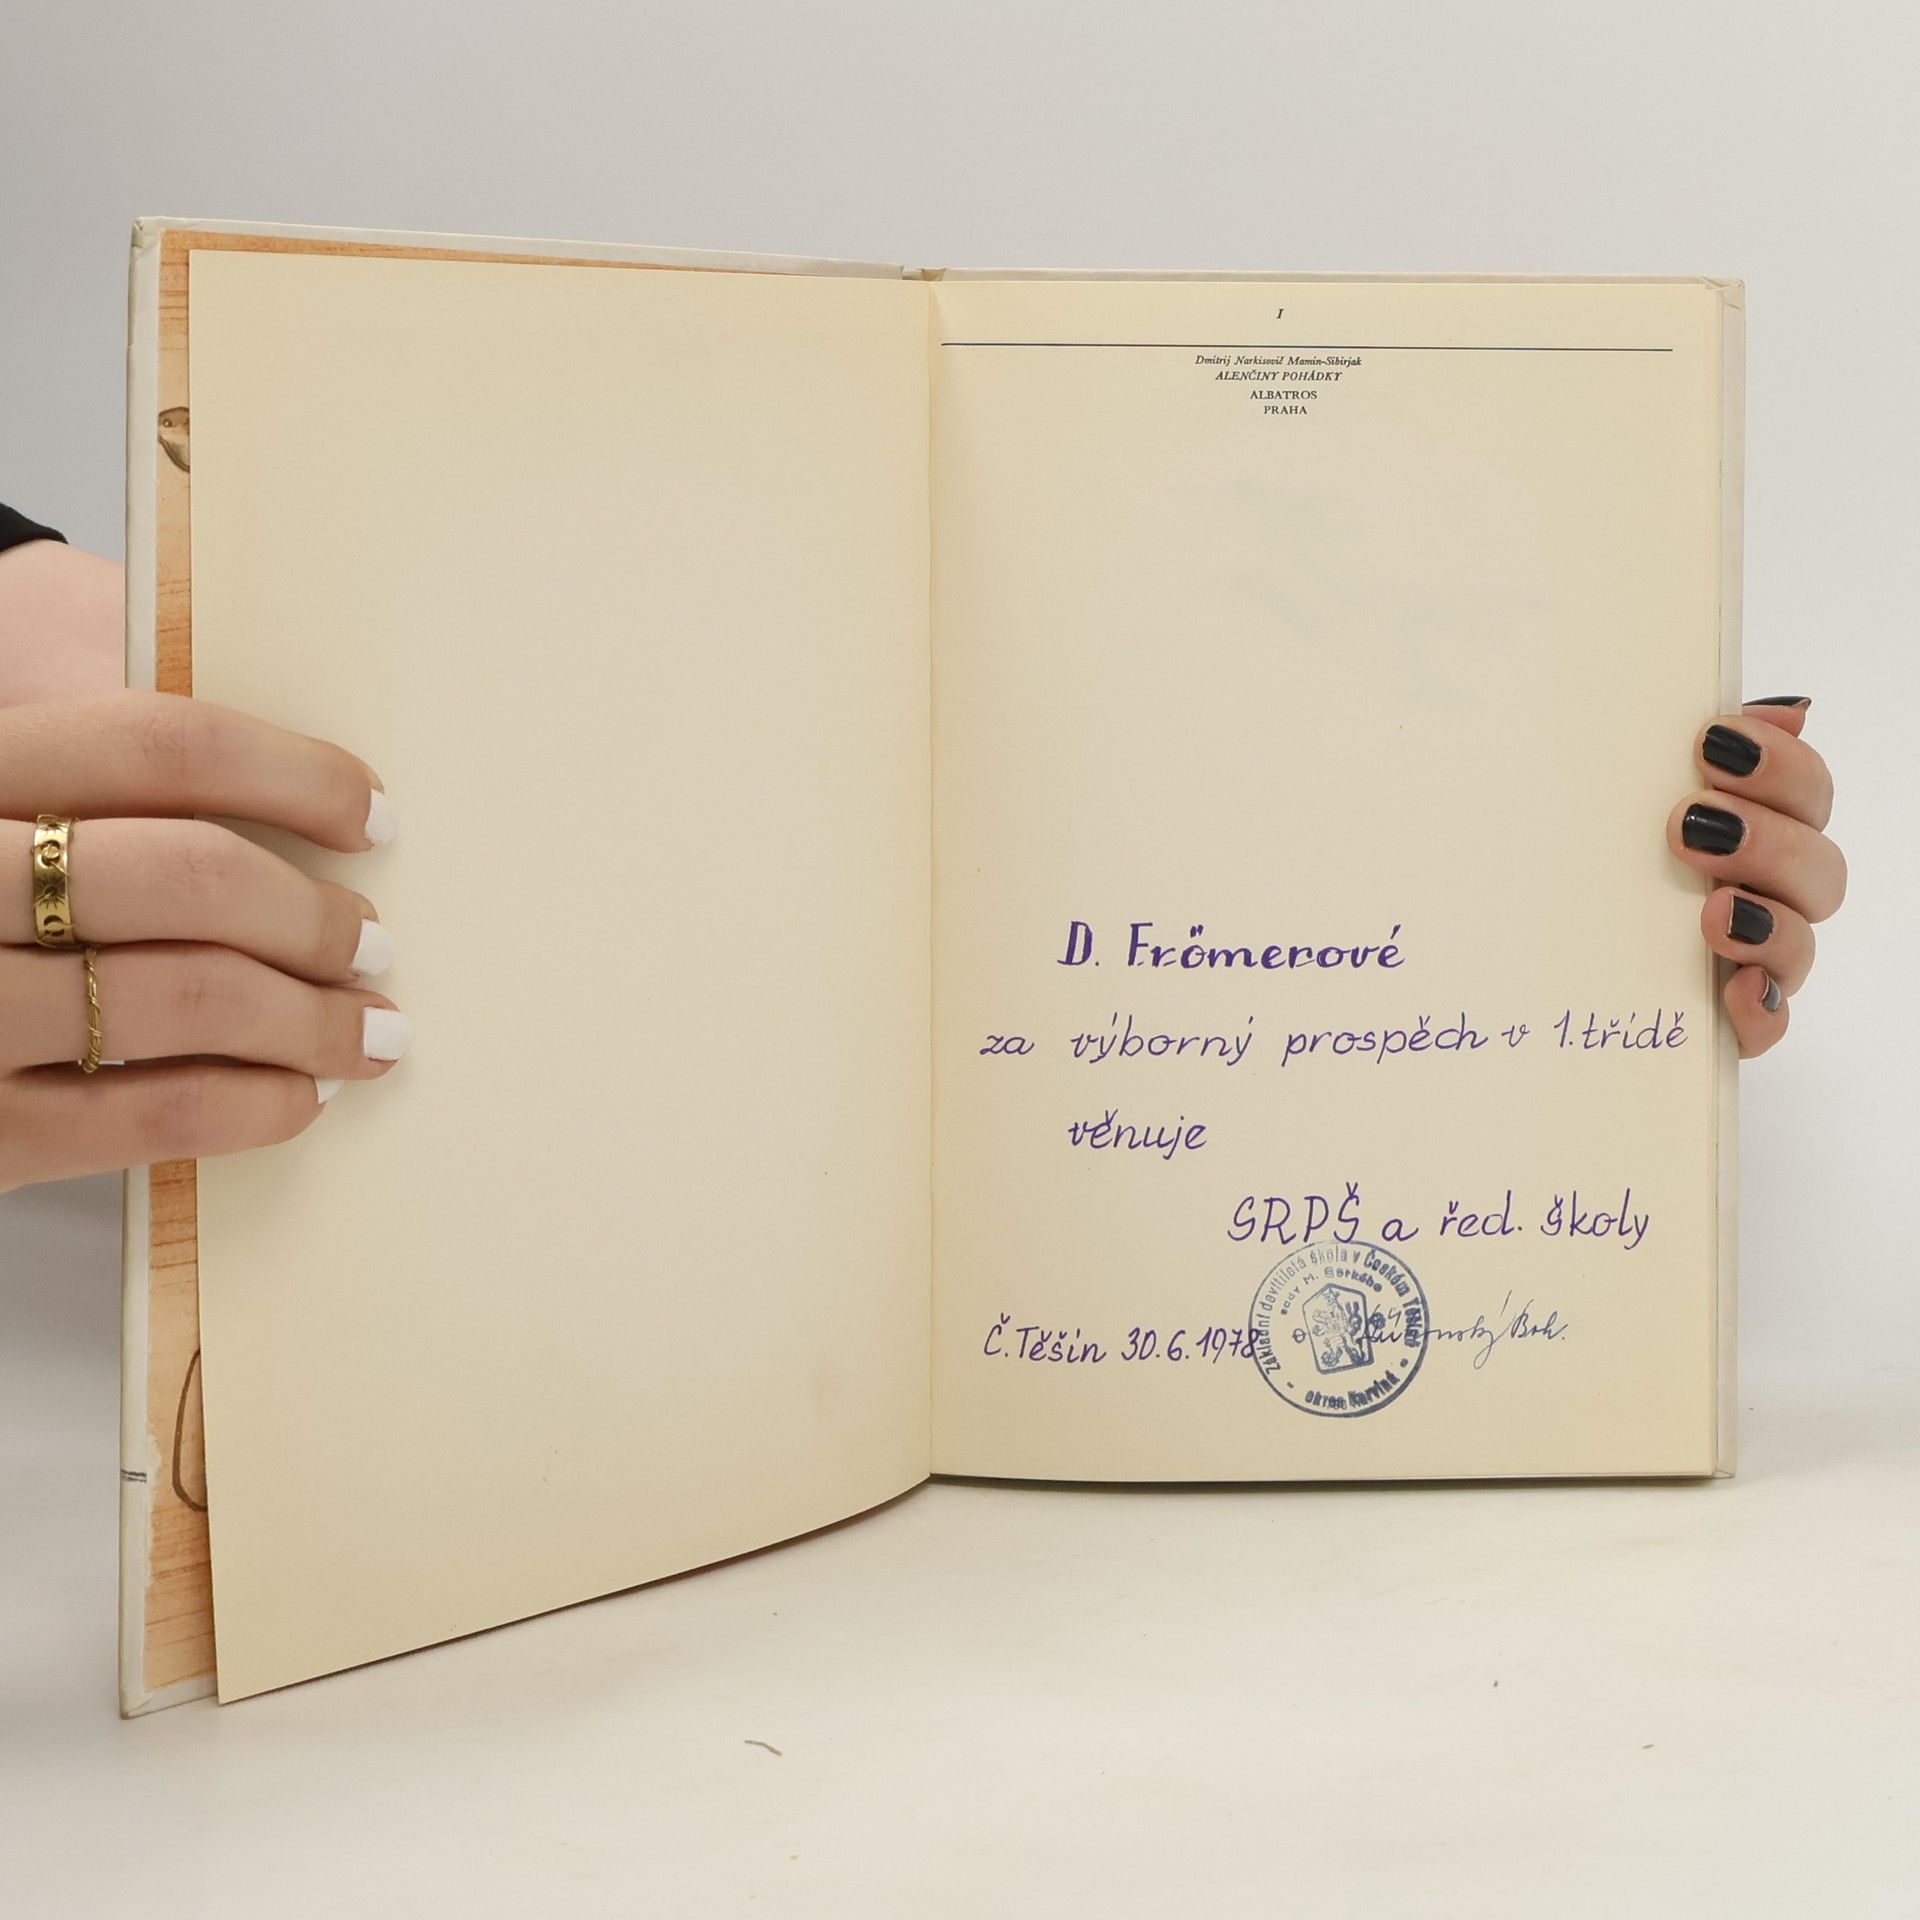 I
Dmitrij Narkisovič Mamin-Sibirjak
ALENČINY POHÁDKY
ALBATROS
PRAHA
D. Frömerové
za výborný prospěch v 1. třídě
věnuje
SRPŠ a řed. školy
Č. Těšín 30. 6. 1978
Základní devítiletá škola v Českém Těšíně
sady M. Gorkého
- okres Karviná -